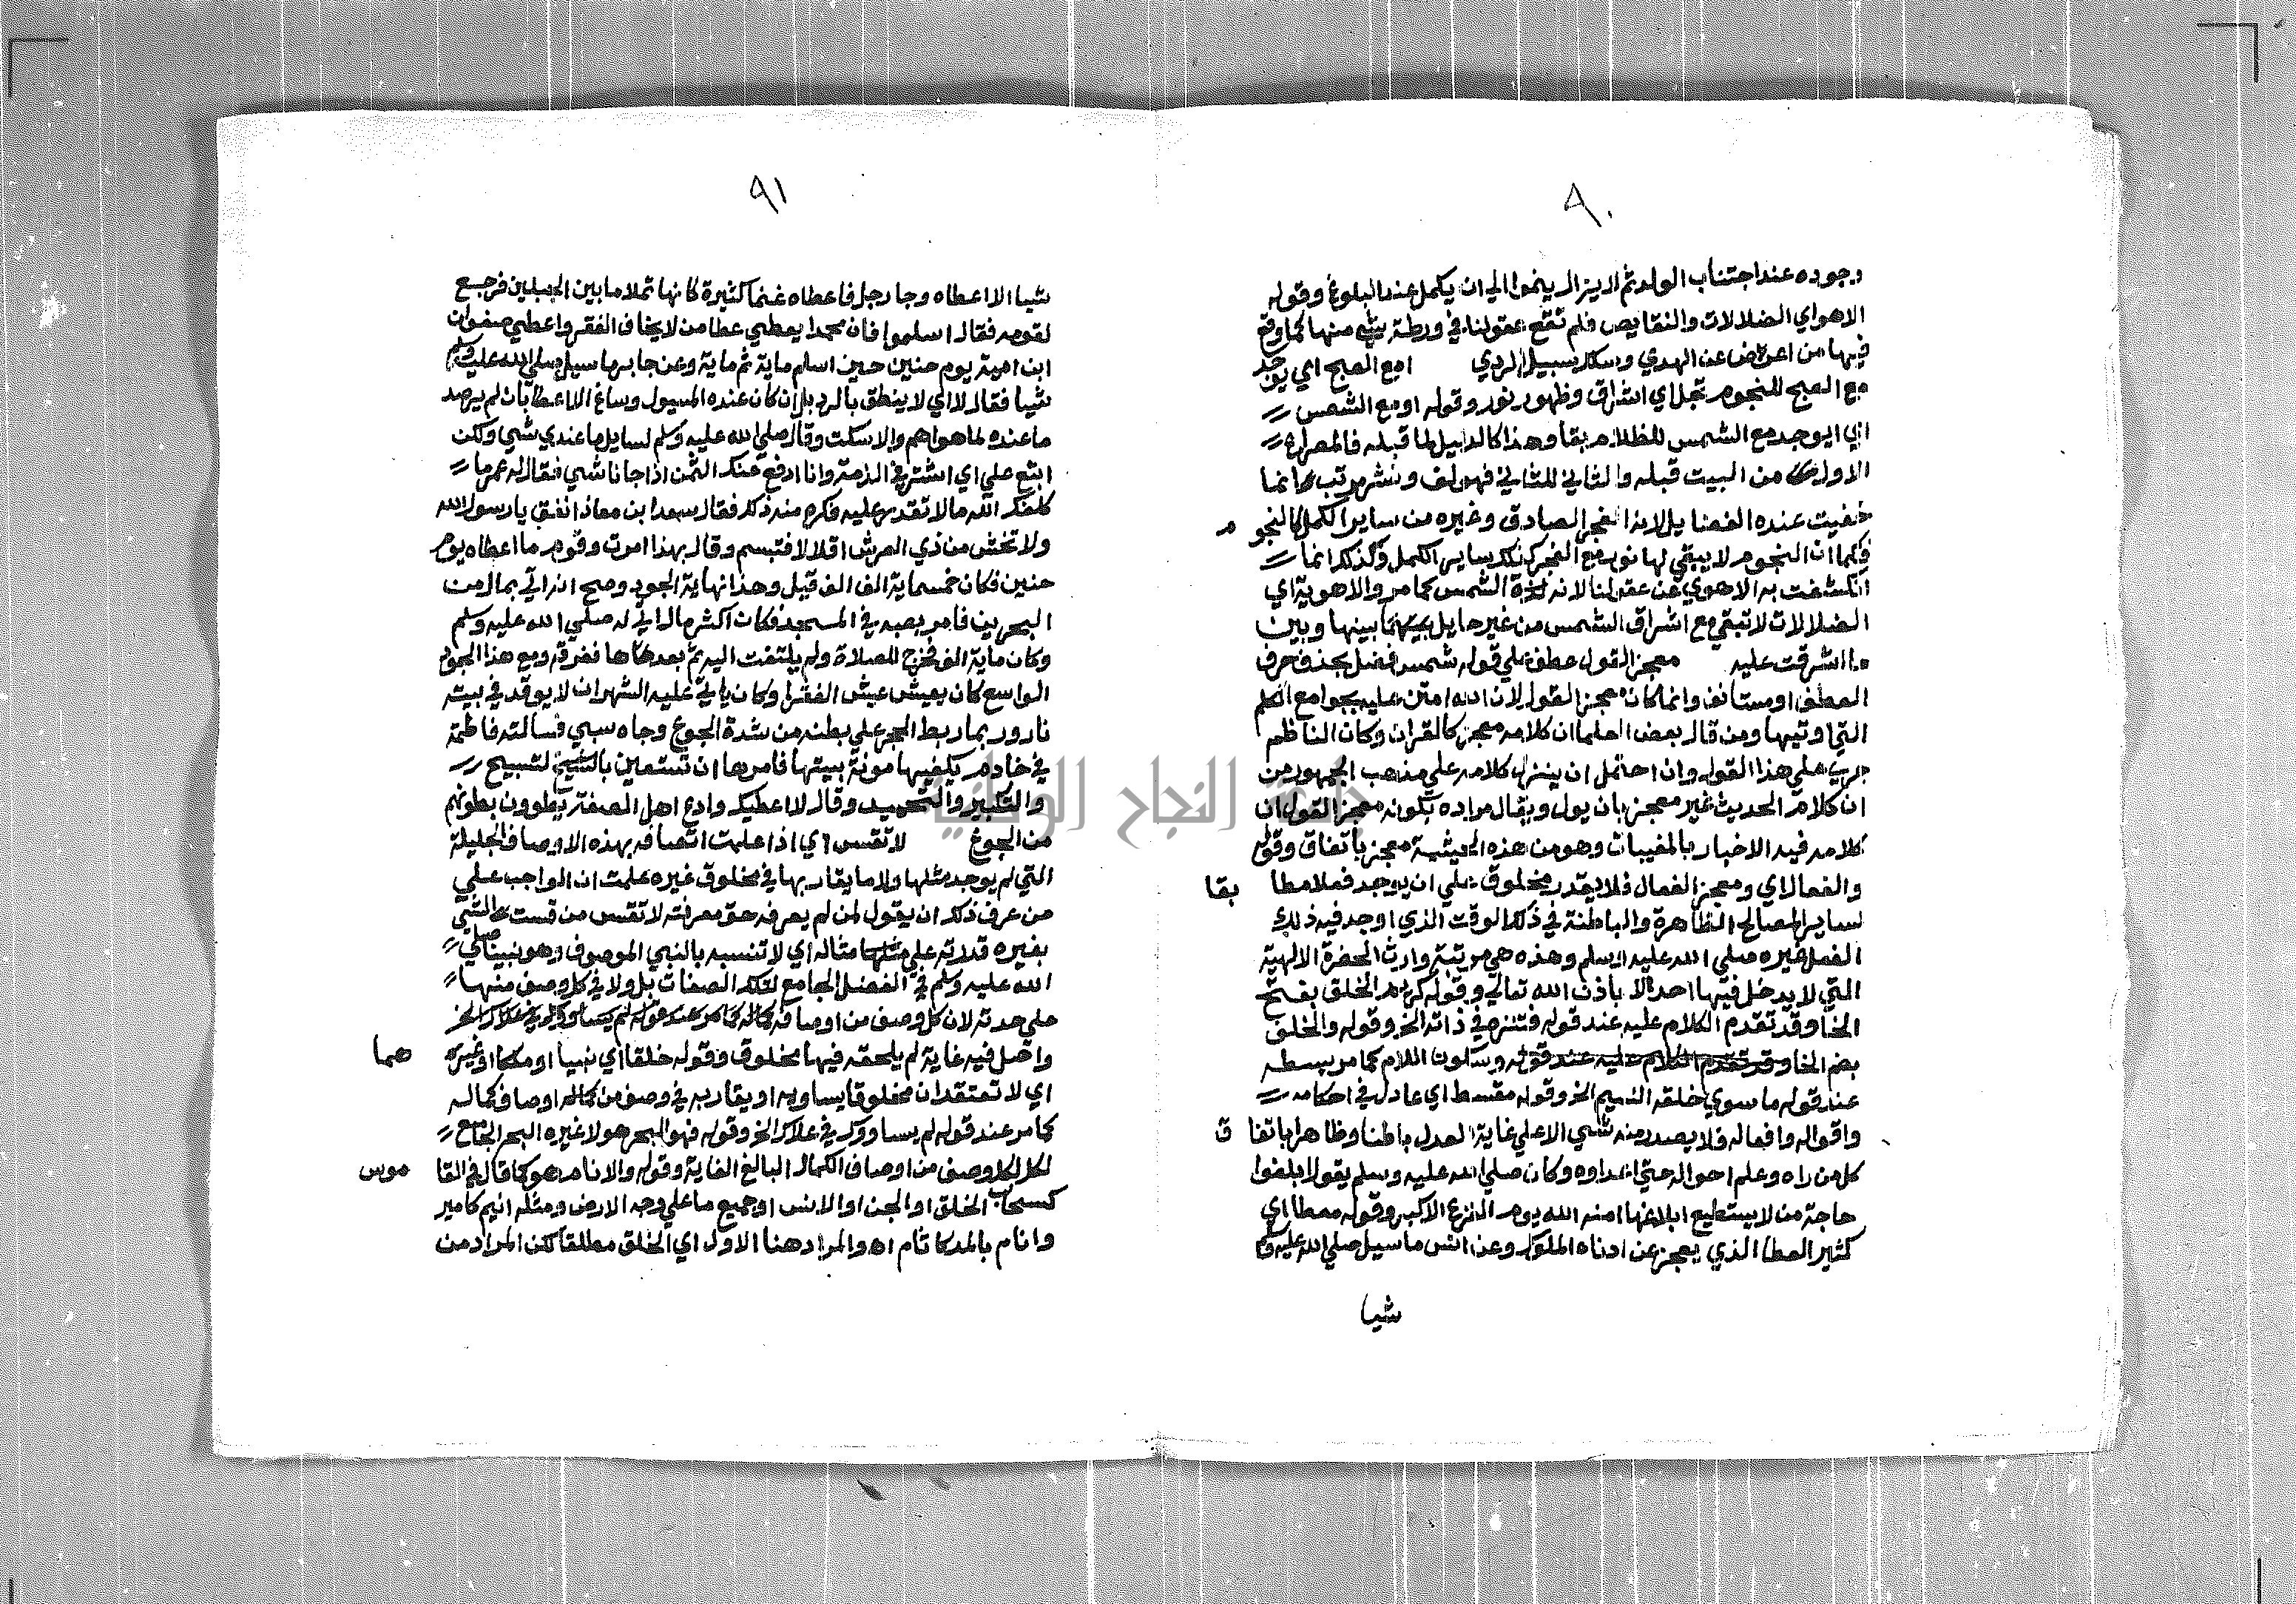 ٩٠
وجوده عند اجتناب الولد ثم لا يزال ينموا الي ان يكمل عند البلوغ وقوله
الاهواي الضلالات والنقايص فلم تقع عقولنا في ورطة بشي منها كما وقع
فيها من اعرض عن الهدي وسلك سبيل الردي امع الصبح اي يوجد
مع الصبح للنجوم تجل اي اشراق وظهور نور وقوله او مع الشمس
اي ايوجد مع الشمس للظلام بقا وهذا كالدليل لما قبله فالمصراع
الاول من البيت قبله والثاني للثاني فهو لف ونشر مرتب وانما
خفيت عنده الفضايل لانه الفجر الصادق وغيره من ساير الكمل كالنجو م
فكما ان النجوم لا يبقي لها نور مع الفجر كذلك ساير الكمل وكذلك انما
انكشفت به الاهوي عن عقولنا لانه الشمس كما مر والاهوية اي
الضلالات لا تبقي مع اشراق الشمس من غير حايل بينها وبين
ما اشرقت عليه معجز القول عطف علي قوله شمس فضل بحذف حرف
العطف او مستانف وانما كان معجز القول لان الله امتن عليه بجوامع الكلم
التي اوتيها ومن قال بعض العلما ان كلامه معجز كالقران وكان الناظم
جري علي هذا القول وان احتمل ان ينزل كلامه علي مذهب الجمهور من
ان كلام الحديث غير معجز بان يول ويقال مراده بكونه معجز القول ان
كلامه فيه الاخبار بالمغيبات وهو من هذه الحيثية معجز باتفاق وقوله
والفعال اي ومعجز الفعال فلا يقدر مخلوق علي ان يوجد فعلا مطا بقا
لساير المصالح الظاهرة والباطنة في ذلك الوقت الذي اوجد فيه ذلك
الفعل غيره صلي الله عليه وسلم وهذه هي مرتبة وارث الحضرة الالهية
التي لا يدخل فيها احد الا باذن الله تعالي وقوله كريم الخلق بفتح
الخا وقد تقدم الكلام عليه عند قوله فتنزه في ذاته الخ وقوله والخلق
بضم الخا وقد تقدم الكلام عليه عند قوله وسكون اللام كما مر بسطه
عند قوله ما سوي خلقه النسيم الخ وقوله مقسط اي عادل في احكامه
واقواله وافعاله فلا يصدر منه شي الا علي غاية العدل باطنا وظاهرا باتفا ق
كل من راه وعلم احواله حتي اعداوه وكان صلي الله عليه وسلم يقول ابلغوا
حاجة من لا يستطيع ابلاغها امنه الله يوم الفزع الاكبر وقوله معطا اي
كثير العطا الذي يعجز عن ادناه الملوك وعن انس ما سيل صلي الله عليه وسلم
شيا
٩١
شيا الا اعطاه وجا رجل فاعطاه غنما كثيرة كانها تملا ما بين الجبلين فرجع
لقومه فقال اسلموا فان محمدا يعطي عطا من لا يخاف الفقر واعطي صفوان
ابن امية يوم حنين حين اسلم ماية ثم ماية وعن جابر ما سيل صلي الله عليه وسلم
شيا فقال لا اي لا ينطق بالرد بل ان كان عنده المسيول وساغ الاعطا بان لم يرصد
ما عنده لما هو اهم والا سكت وقال صلي الله عليه وسلم لسايل ما عندي شي ولكن
ابتع علي اي اشتر في الذمة وانا ادفع عنك الثمن اذا جانا شي فقال له عمر ما
كلفك الله ما لا تقدر عليه فكره منه ذلك فقال سعد ابن معاذ انفق يا رسول الله
ولا تخش من ذي العرش اقلالا فتبسم وقال بهذا امرت وقوم ما اعطاه يوم
حنين فكان خمسماية الف الف قيل وهذا نهاية الجود وصح انه اتي بمال من
البحرين فامر بصبه في المسجد فكان اكثر مال اتي له صلي الله عليه وسلم
وكان ماية الف فخرج للصلاة ولم يلتفت اليه ثم بعدها نفرقه ومع هذا الجود
الواسع كان يعيش عيش الفقرا وكان ياتي عليه الشهران لا يوقد في بيته
نار وربما ربط الحجر علي بطنه من شدة الجوع وجاه سبي فسالته فاطمة
في خادم يكفيها مونة بيتها فامرها ان تستعين بالتسبيح
والتكبير والتحميد وقال لا اعطيك وادع اهل الصفة يطوون بطونهم
من الجوع لا تقس اي اذا علمت اتصافه بهذه الاوصاف الجليلة
التي لم يوجد مثلها ولا ما يقاربها في مخلوق غيره علمت ان الواجب علي
من عرف ذلك ان يقول لمن لم يعرفه حق معرفته لا تقس من قست الشي
بغيره قدرته علي مثاله اي لا تنسبه بالنبي الموصوف وهو نبينا صلي
الله عليه وسلم في الفضل الجامع لتلك الصفات بل ولا في كل وصف منها
علي حدته لان كل وصف من اوصافه كما مر عند قوله لم يساووك في علاك الخ
واصل فيه غاية لم يلحقه فيها مخلوق وقوله خلقا اي نبيا او ملكا او غيره هما
اي لا تعتقد ان مخلوقا يساويه او يقاربه في وصف من كمال اوصاف كماله
كما مر عند قوله لم يساووك في علاك الخ وقوله فهو البحر هو لا غيره البحر الجامع
لكل وصف من اوصاف الكمال البالغ الغاية وقوله والانام هو كما قال في القا موس
كسحاب الخلق او الجن او الانس او جميع ما علي وجه الارض ومثله انيم كامير
وانام بالمد كاثام اه والمراد هنا الاول اي الخلق مطلقا لكن المراد من
جامعة النجاح الوطنية